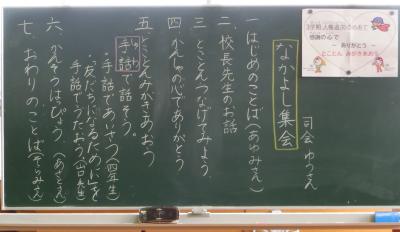 なかよし集会
司会 ゆうさん
一 はじめのことば(あゆみさん)
二、校長先生のお話
三、とことんつなげてみよう
四、かんしゃの心でありがとう
五、とことんみがきあおう
しゅ わ
手話で話そう。
・手話であいさつ(四年生)
・「友だちになるために」を
手話でうたおう(山口先生)
六、かんそうはっぴょう(あさみさん)
七、おわりのことば
感謝の心で
~ ありがとう ~
とことん みがきあおう